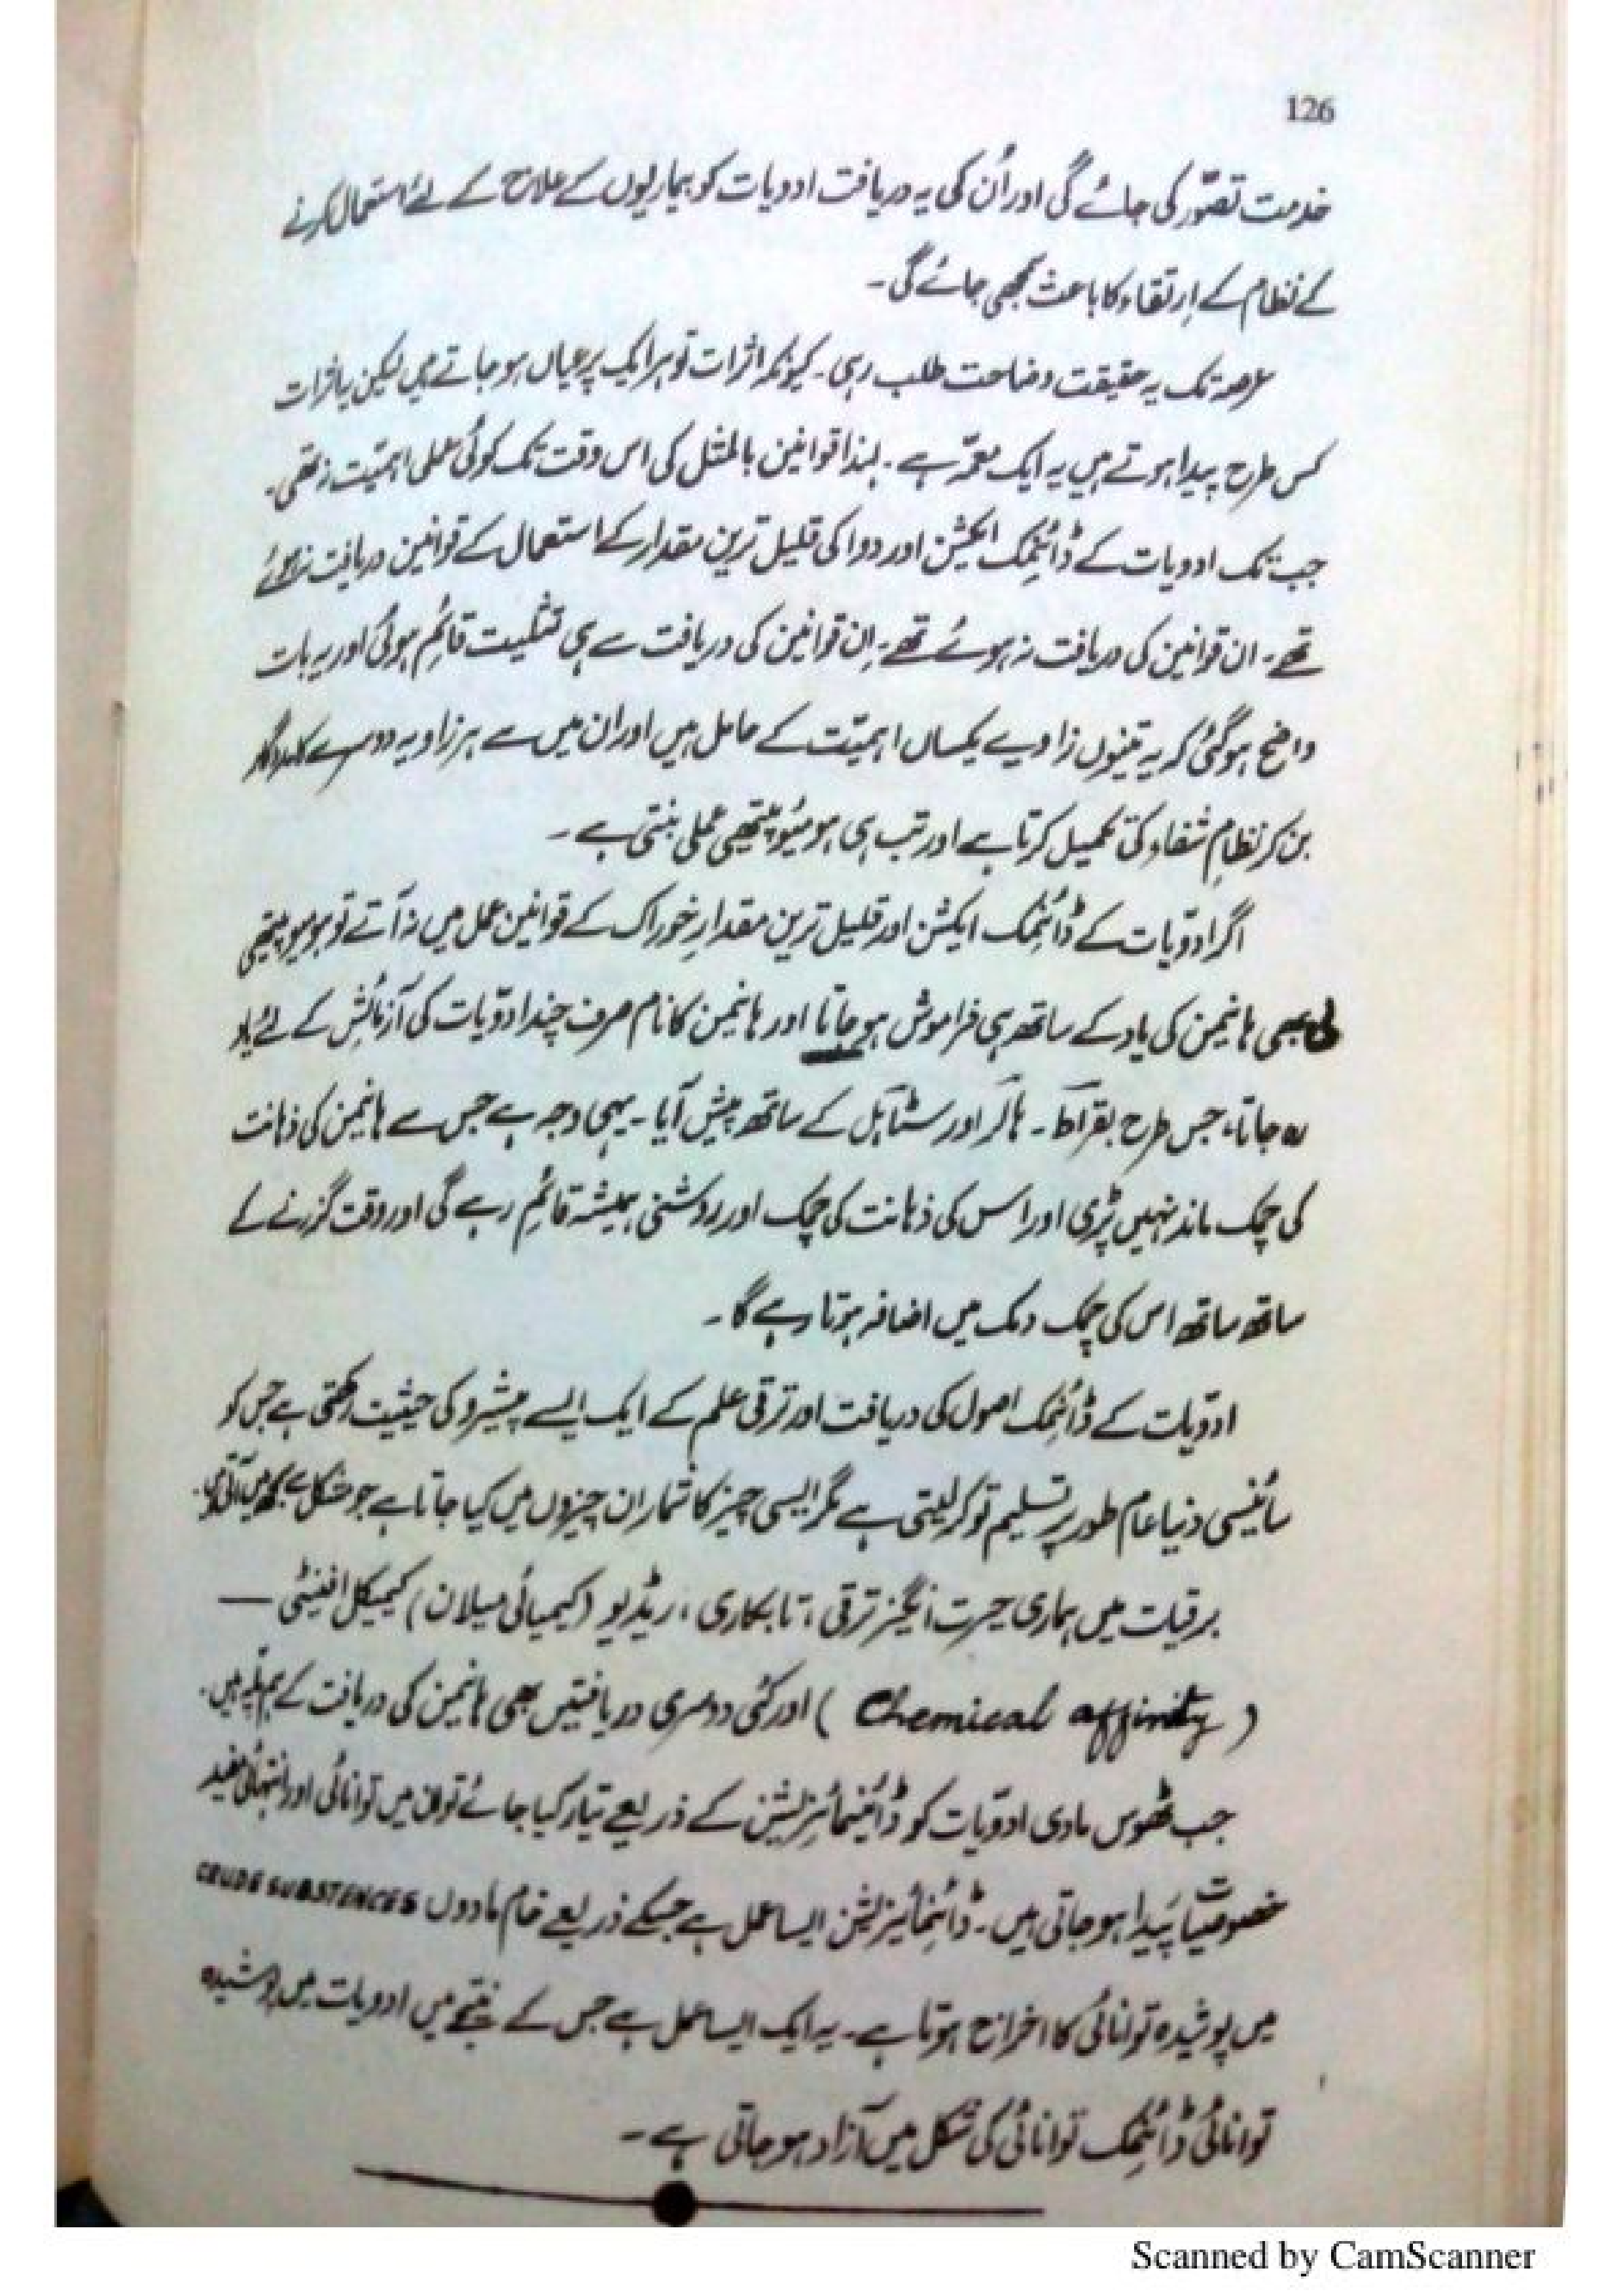 126
خدمت تصوّر کی جائے گی اور اُن کی یہ دریافت ادویات کو بیماریوں کے علاج کے لئے استعمال کرنے
کے نظام کے اِرتقاء کا باعث سمجھی جائے گی۔
عرصہ تک یہ حقیقت وضاحت طلب رہی۔ کیونکہ اثرات تو ہر ایک پر عیاں ہو جاتے ہیں لیکن یہ اثرات
کس طرح پیدا ہوتے ہیں یہ ایک معمّہ ہے۔ لہذا قوانین بالمثل کی اس وقت تک کوئی عملی اہمیّت نہ تھی۔
جب تک ادویات کے ڈائنمک ایکشن اور دوا کی قلیل ترین مقدار کے استعمال کے قوانین دریافت نہ ہوئے
تھے۔ ان قوانین کی دریافت نہ ہوئے تھے۔ اِن قوانین کی دریافت سے ہی تثلیث قائم ہوئی اور یہ بات
واضح ہو گئی کہ یہ تینوں زاویے یکساں اہمیّت کے حامل ہیں اور ان میں سے ہر زاویہ دوسرے کا مددگار
بن کر نظامِ شفاء کی تکمیل کرتا ہے اور تب ہی ہومیوپیتھی عملی بنتی ہے۔
اگر ادوّیات کے ڈائنمک ایکشن اور قلیل ترین مقدارِ خوراک کے قوانین عمل میں نہ آتے تو ہومیوپیتھی
بھی ہانیمن کی یاد کے ساتھ ہی فراموش ہو جاتا اور ہانیمن کا نام صرف چند ادوّیات کی آزمائش کے لئے یاد
رہ جاتا، جس طرح بقراط۔ ہالر اور سٹاہل کے ساتھ پیش آیا۔ یہی وجہ ہے جس سے ہانیمن کی ذہانت
کی چمک ماند نہیں پڑی اور اس کی ذہانت کی چمک اور روشنی ہمیشہ قائم رہے گی اور وقت گزرنے کے
ساتھ ساتھ اس کی چمک دمک میں اضافہ ہوتا رہے گا۔
ادوّیات کے ڈائنمک اصول کی دریافت اور ترقی علم کے ایک ایسے پیشرو کی حیثیت رکھتی ہے جس کو
سائنسی دنیا عام طور پر تسلیم تو کر لیتی ہے مگر ایسی چیز کا شمار ان چیزوں میں کیا جاتا ہے جو مشکل سے سمجھ میں آتی ہیں۔
برقیات میں ہماری حیرت انگیز ترقی، تابکاری، ریڈیو (کیمیائی میلان) کیمیکل افینٹی —
(Chemical affinity) اور کئی دوسری دریافتیں بھی ہانیمن کی دریافت کے ہم پلہ ہیں۔
جب ٹھوس مادی ادوّیات کو ڈائینمائزیشن کے ذریعے تیار کیا جائے تو ان میں توانائی اور انتہائی مفید
خصوصیات پیدا ہو جاتی ہیں۔ ڈائنمائیزیشن ایسا عمل ہے جسکے ذریعے خام مادوں CRUDE SUBSTENCES
میں پوشیدہ توانائی کا اخراج ہوتا ہے۔ یہ ایک ایسا عمل ہے جس کے نتیجے میں ادویات میں پوشیدہ
توانائی ڈائنمک توانائی کی شکل میں آزاد ہو جاتی ہے۔
Scanned by CamScanner